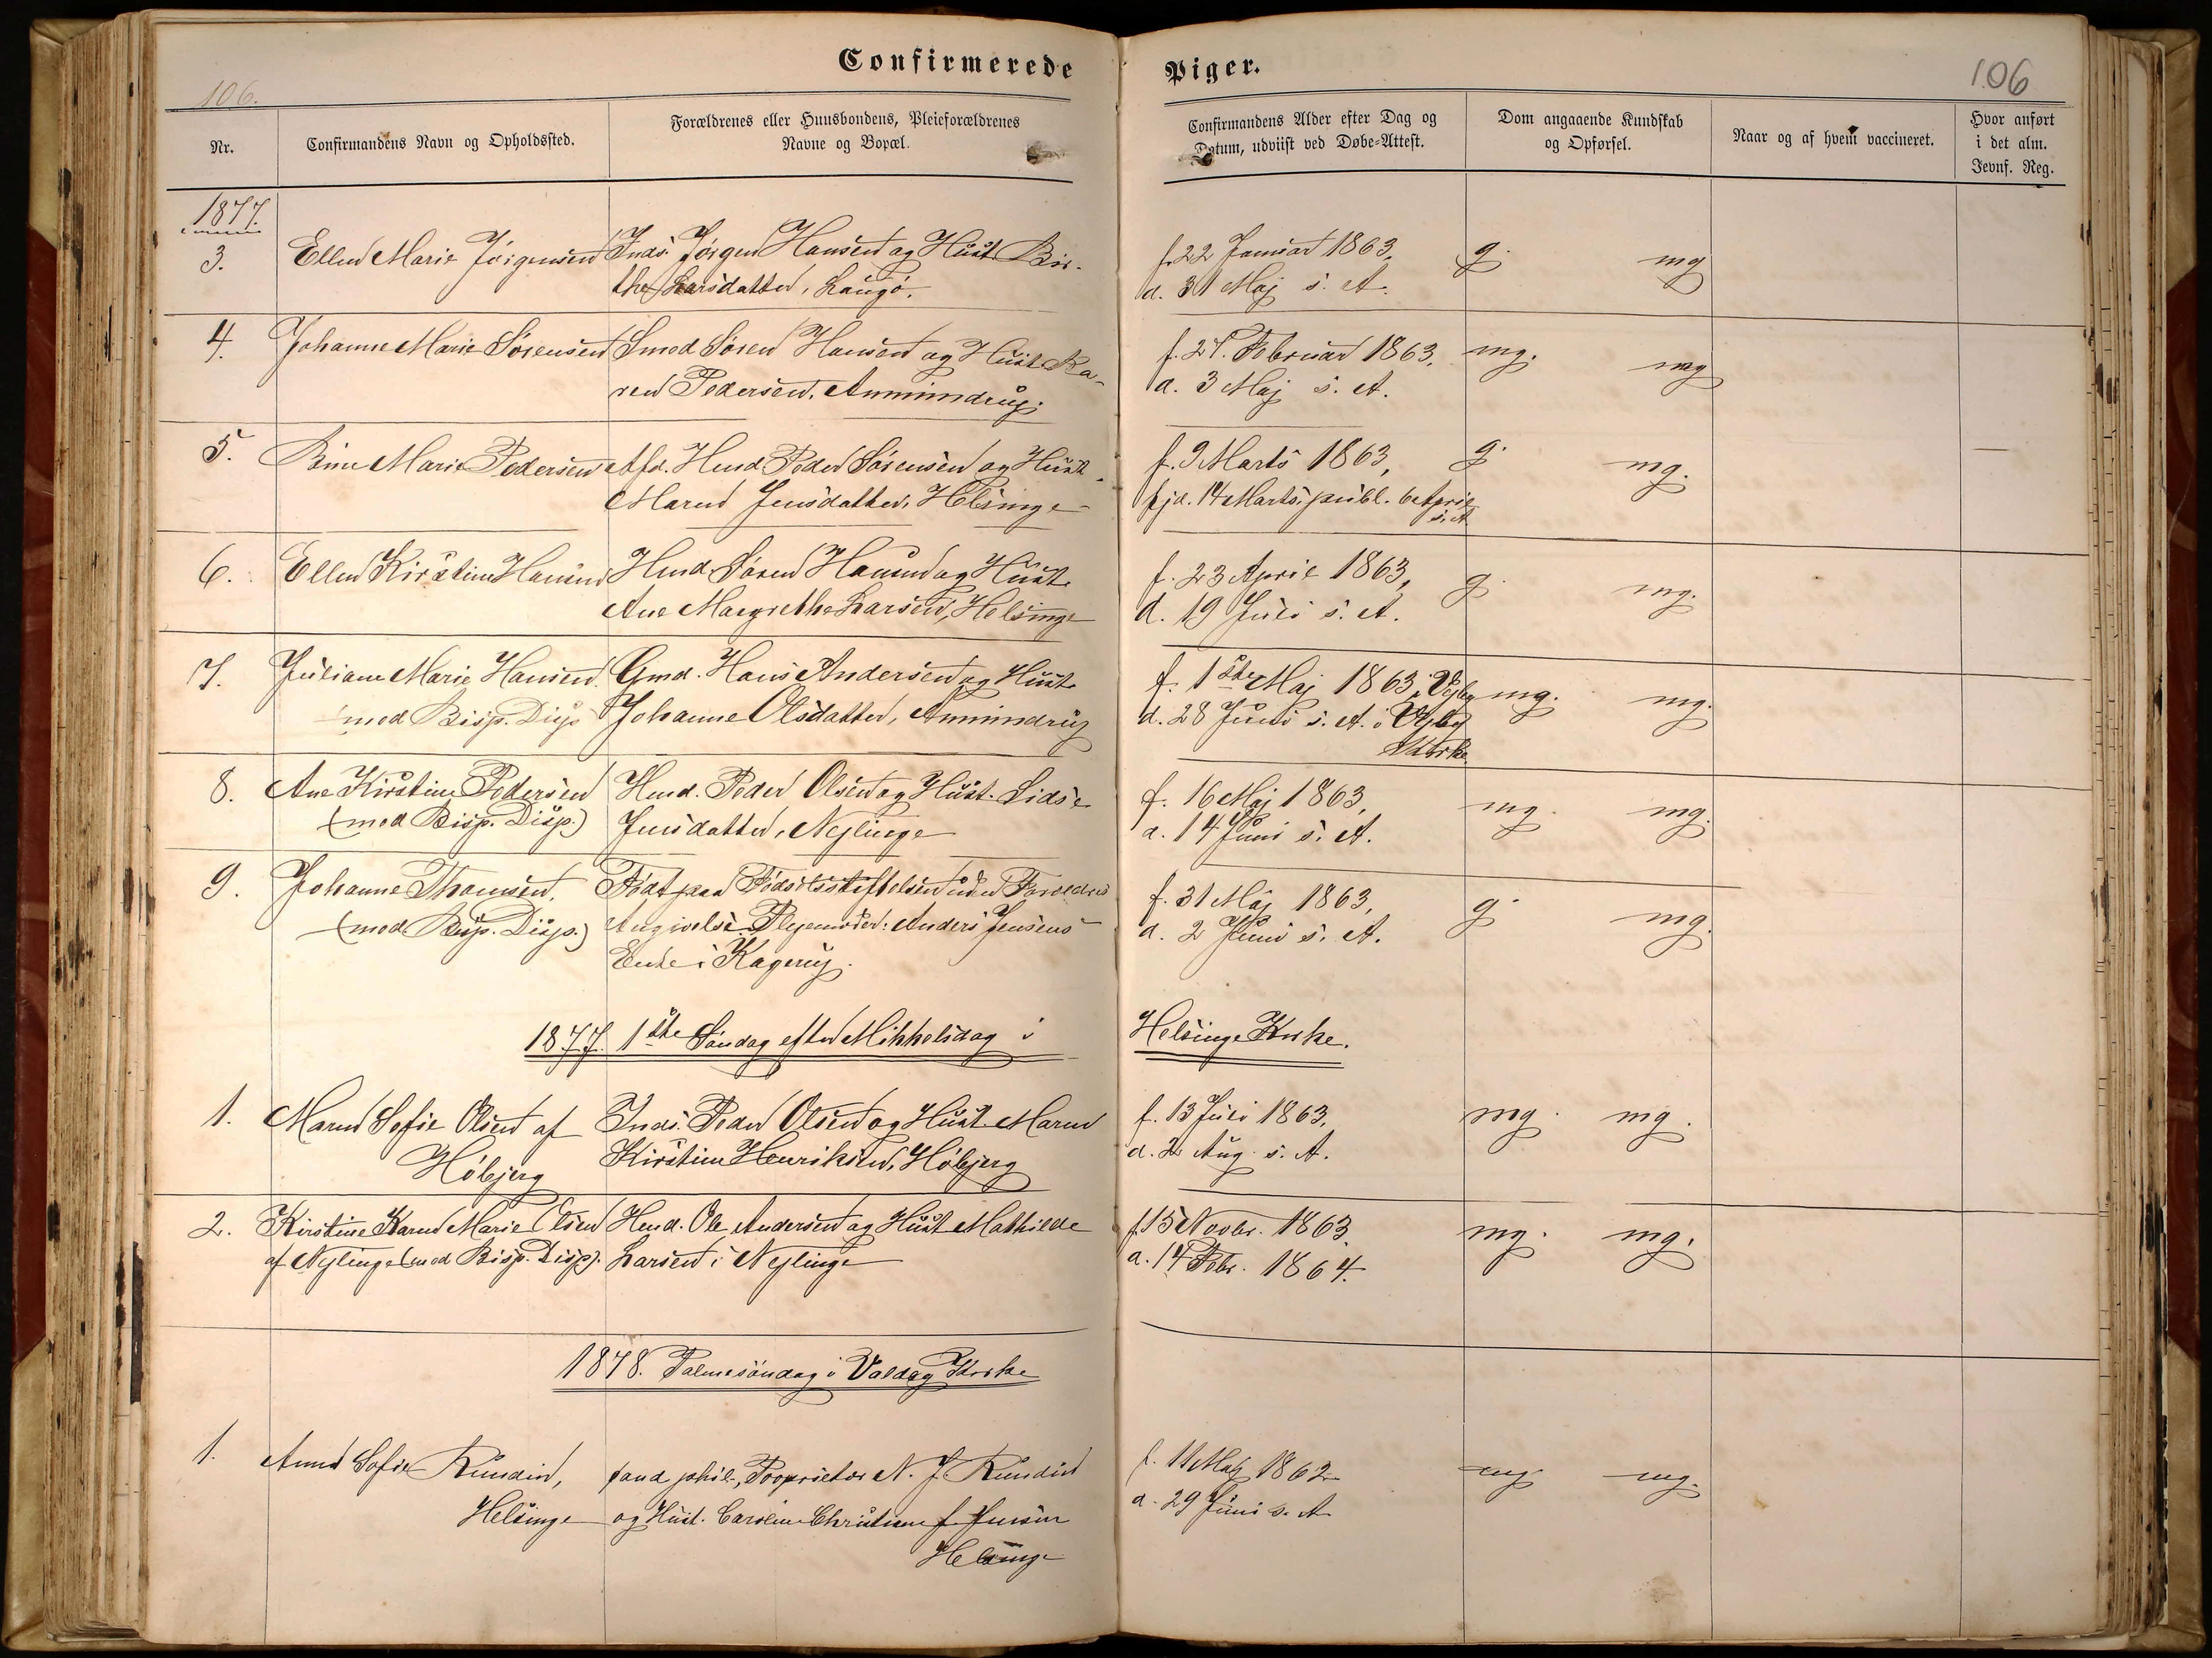 Confirmerede Piger.
106.
106
Nr.
Confirmandens Navn og Opholdssted.
Forældrenes eller Huusbondens, Pleieforældrenes
Navne og Bopæl.
Confirmandens Alder efter Dag og
Datum, udviist ved Døbe-Attest.
Dom angaaende Kundskab
og Opførsel.
Naar og af hvem vaccineret.
Hvor anført
i det alm.
Jevnf. Reg.
1877.
3. Ellen Marie Jørgensen Inds. Jørgen Hansen og Hust. Bir- f. 22 Januar 1863, g. mg
the Larsdatter, Laugø. d. 31 Maj s. A.
4. Johanne Marie Sørensen Smed Søren Hansen og Hust. Ka- f. 27. Februar 1863, mg. mg
ren Pedersen, Ammindrup. d. 3 Maj s. A.
5. Marie Pedersen Afd. Hmd. Peder Sørensen og Hust. f. 9 Marts 1863, g. mg.
Maren Jensdatter, Helsinge hjd. 14 Marts, publ. 6 April
s. A
6. Ellen Kirstine Hansen Hmd. Søren Hansen og Hust. f. 23 April 1863, g. mg.
Ane Margrethe Larsen, Helsinge d. 19 Juli s. A.
7. Juliane Marie Hansen. Gmd. Hans Andersen og Hust. f. 1ste Maj 1863 i Vejby mg. mg.
med Bisp. Disp Johanne Olsdatter, Ammindrup d. 28 Juni s. A. i Vejby
Kirke
8. Ane Kirstine Pedersen Hmd. Peder Olsen og Hust. Sidse f. 16 Maj 1863, mg. mg.
(med Bisp. Disp.) Jensdatter, Nejlinge d. 14 Juni s. A.
9. Johanne Thomsen. Født paa Fødselsstiftelsen uden Forældres f. 31 Maj 1863, g. mg.
(med Bisp. Disp.) Angivelse. Plejemoder: Anders Jensens d. 2 Juni s. A.
Enke i Kagerup.
1877. 1ste Søndag efter Mikkelsdag i Helsinge Kirke.
1. Maren Sofie Olsen af Inds. Peder Olsen og Hust. Maren f. 13 Juli 1863, mg. mg.
Høbjerg Kirstine Henriksen, Høbjerg d. 2 Aug. s. A.
2. Kirstine Karen Marie Olsen Hmd. Ole Andersen og Hust. Mathilde f. 15 Novbr. 1863. mg. mg.
af Nejlinge (med Bisp. Disp). Larsen i Nejlinge d. 14 Febr. 1864.
1878. Palmesøndag i Valdby Kirke
1. Anna Sofie Rundin, cand. phil., Proprietær N. J. Rundin f. 11 Maj 1862 mg. mg.
Helsinge og Hust. Caroline Christiane f. Jensen d. 29 Juni s. A
Helsinge